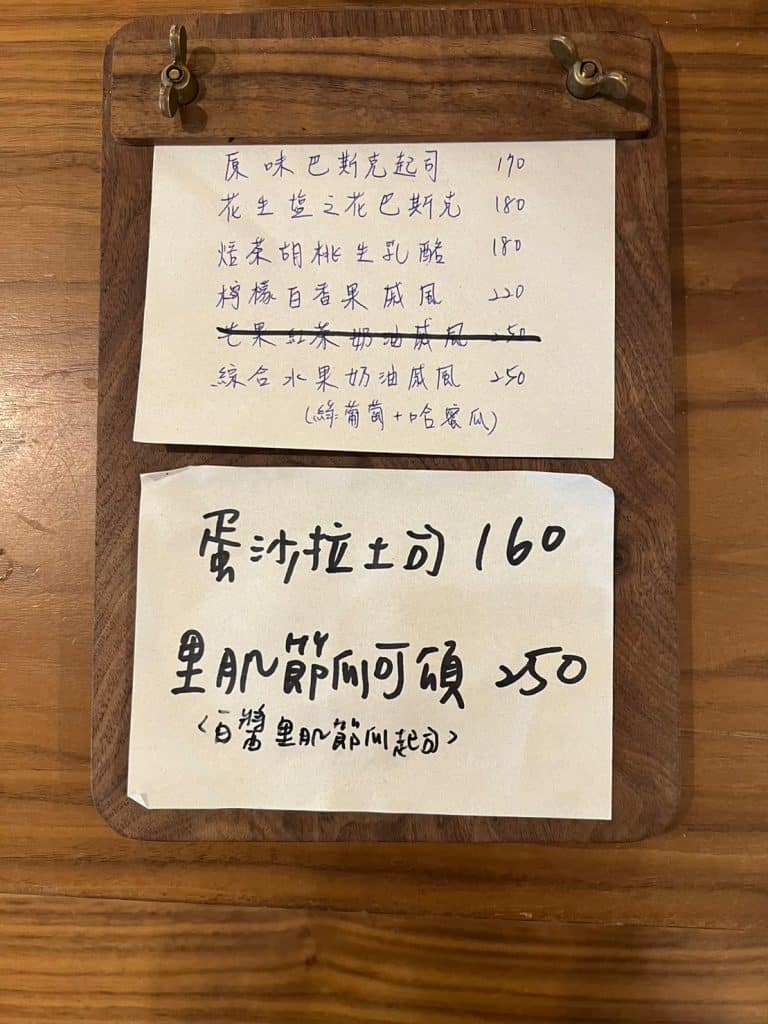 原味巴斯克起司 170
花生塩之花巴斯克 180
焙茶胡桃生乳酪 180
檸檬百香果戚風 220
芒果紅茶奶油戚風 250
綜合水果奶油戚風 250
(綠葡萄+哈蜜瓜)
蛋沙拉土司 160
里肌節瓜可頌 250
(白醬里肌節瓜起司)